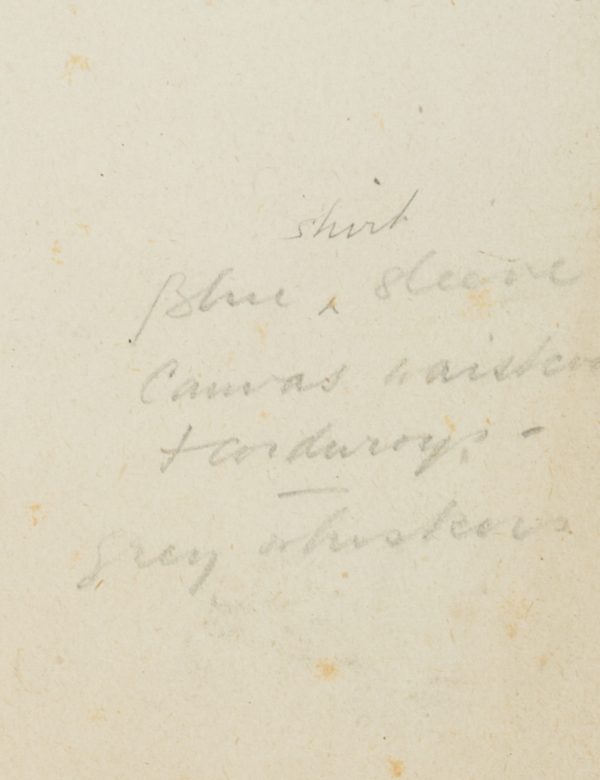 shirt
Blue ‸ sleeve
Canvas waistcoa
+ corduroys -
grey whiskers